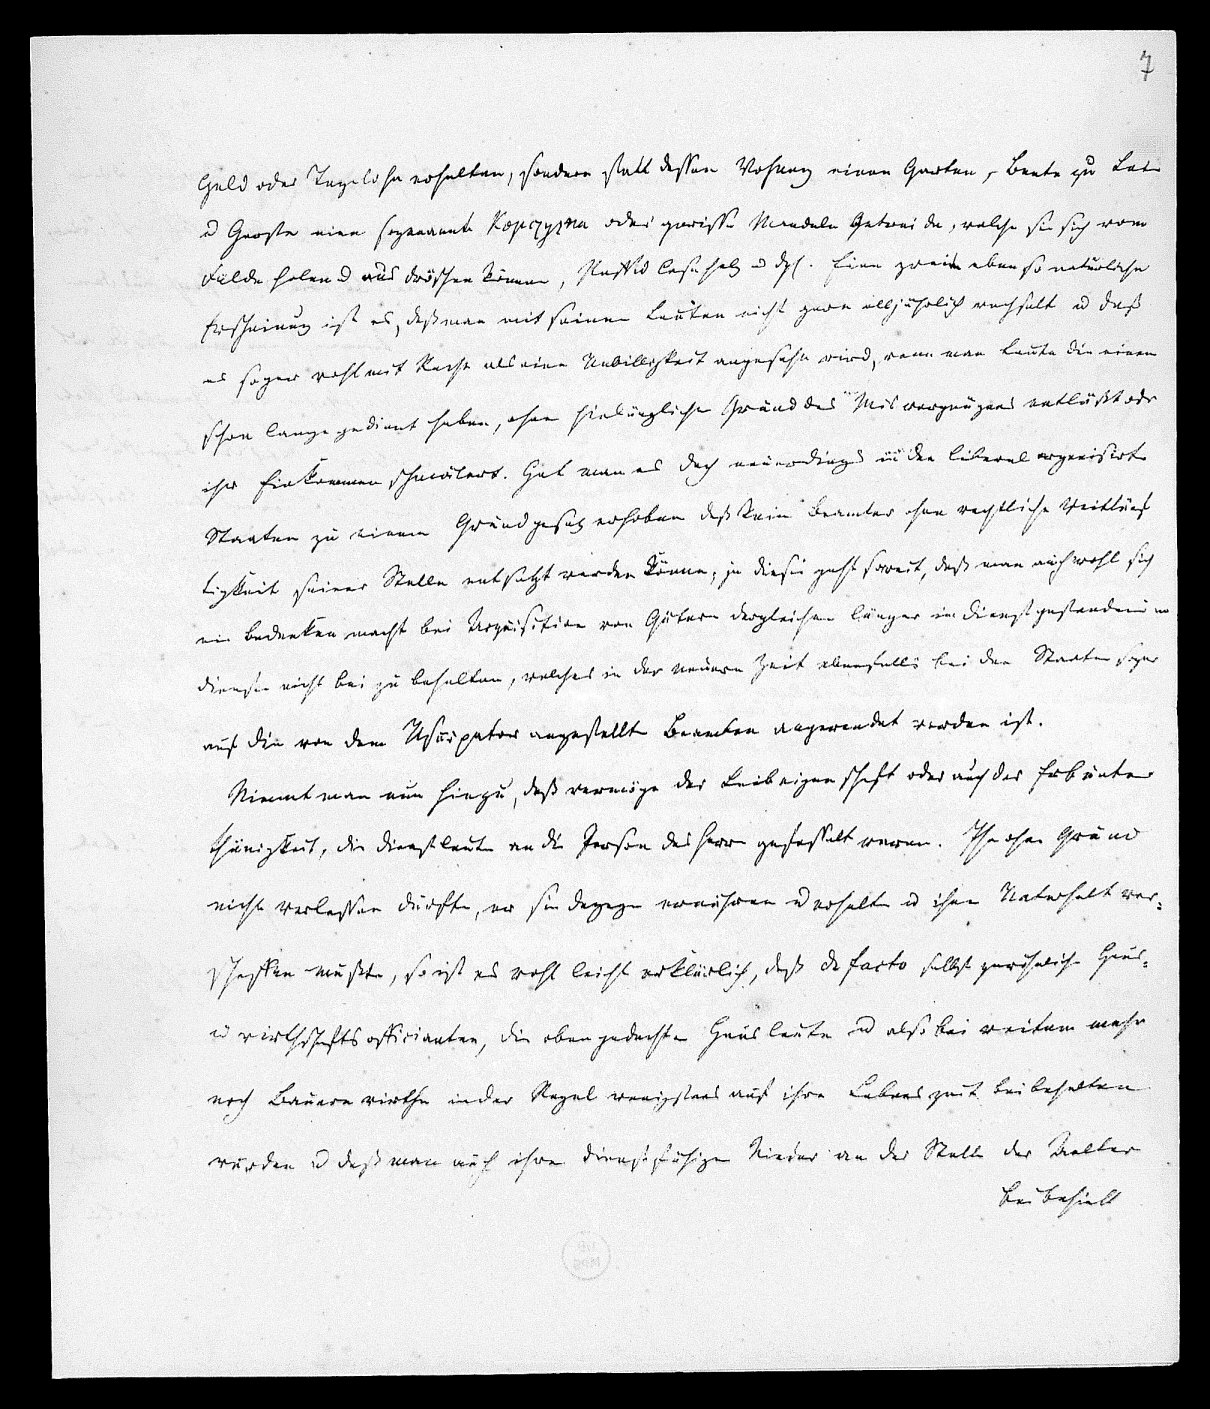 7
Geld oder Tagelohn erhalten, sondern statt dessen Wohnung einen Garten, Beete zu Lein
u Gerste eine sogenannte Kopczyzna oder gewisse Mandeln Getreide, welche sie sich vom
Felde holen u ausdröschen können, Raff u Leseholz u dgl. Eine zweite ebenso natürliche
Erscheinung ist es, daß man mit seinen Leuten nicht gern alljährlich wechselt u daß
es sogar wohl mit Recht als eine Unbilligkeit angesehn wird, wenn man Leute die einem
schon lange gedient haben, ohne hinlängliche Gründe des Misvergnügens entläßt oder
ihr Einkommen schmälert. Hat man es doch neuerdings in den liberal organisirten
Staaten zu einem Grundgesetz erhoben daß kein Beamter ohne rechtliche Weitläuf
tigkeit seiner Stelle entsetzt werden könne, ja dieses geht soweit, daß man auch wohl sich
ein Bedenken macht bei Acquisition von Gütern dergleichen länger in Dienst gestandene im
Dienste nicht bei zu behalten, welches in der neuern Zeit ebenfalls bei den Staaten sogar
auf die von dem Usurpator angestellte Beamten angewendet worden ist.
Nimmt man nun hinzu, daß vermöge der Leibeigenschaft oder auch der Erbunter
thänigkeit, die Dienstleute an die Person des Herrn gefesselt waren. Ihn ohne Grund
nicht verlassen durften, er sie dagegen ernähren u erhalten u ihnen Unterhalt ver=
schaffen mußte, so ist es wohl leicht erklärlich, daß de facto selbst gewöhnliche Haus=
u wirthschafts officianten, die oben gedachten Hausleute u also bei weitem mehr
noch Bauern wirthe in der Regel wenigstens auf ihre Lebens zeit beibehalten
wurden u daß man auch ihre dienstfähigen Kinder an der Stelle der Aelter
beibehielt